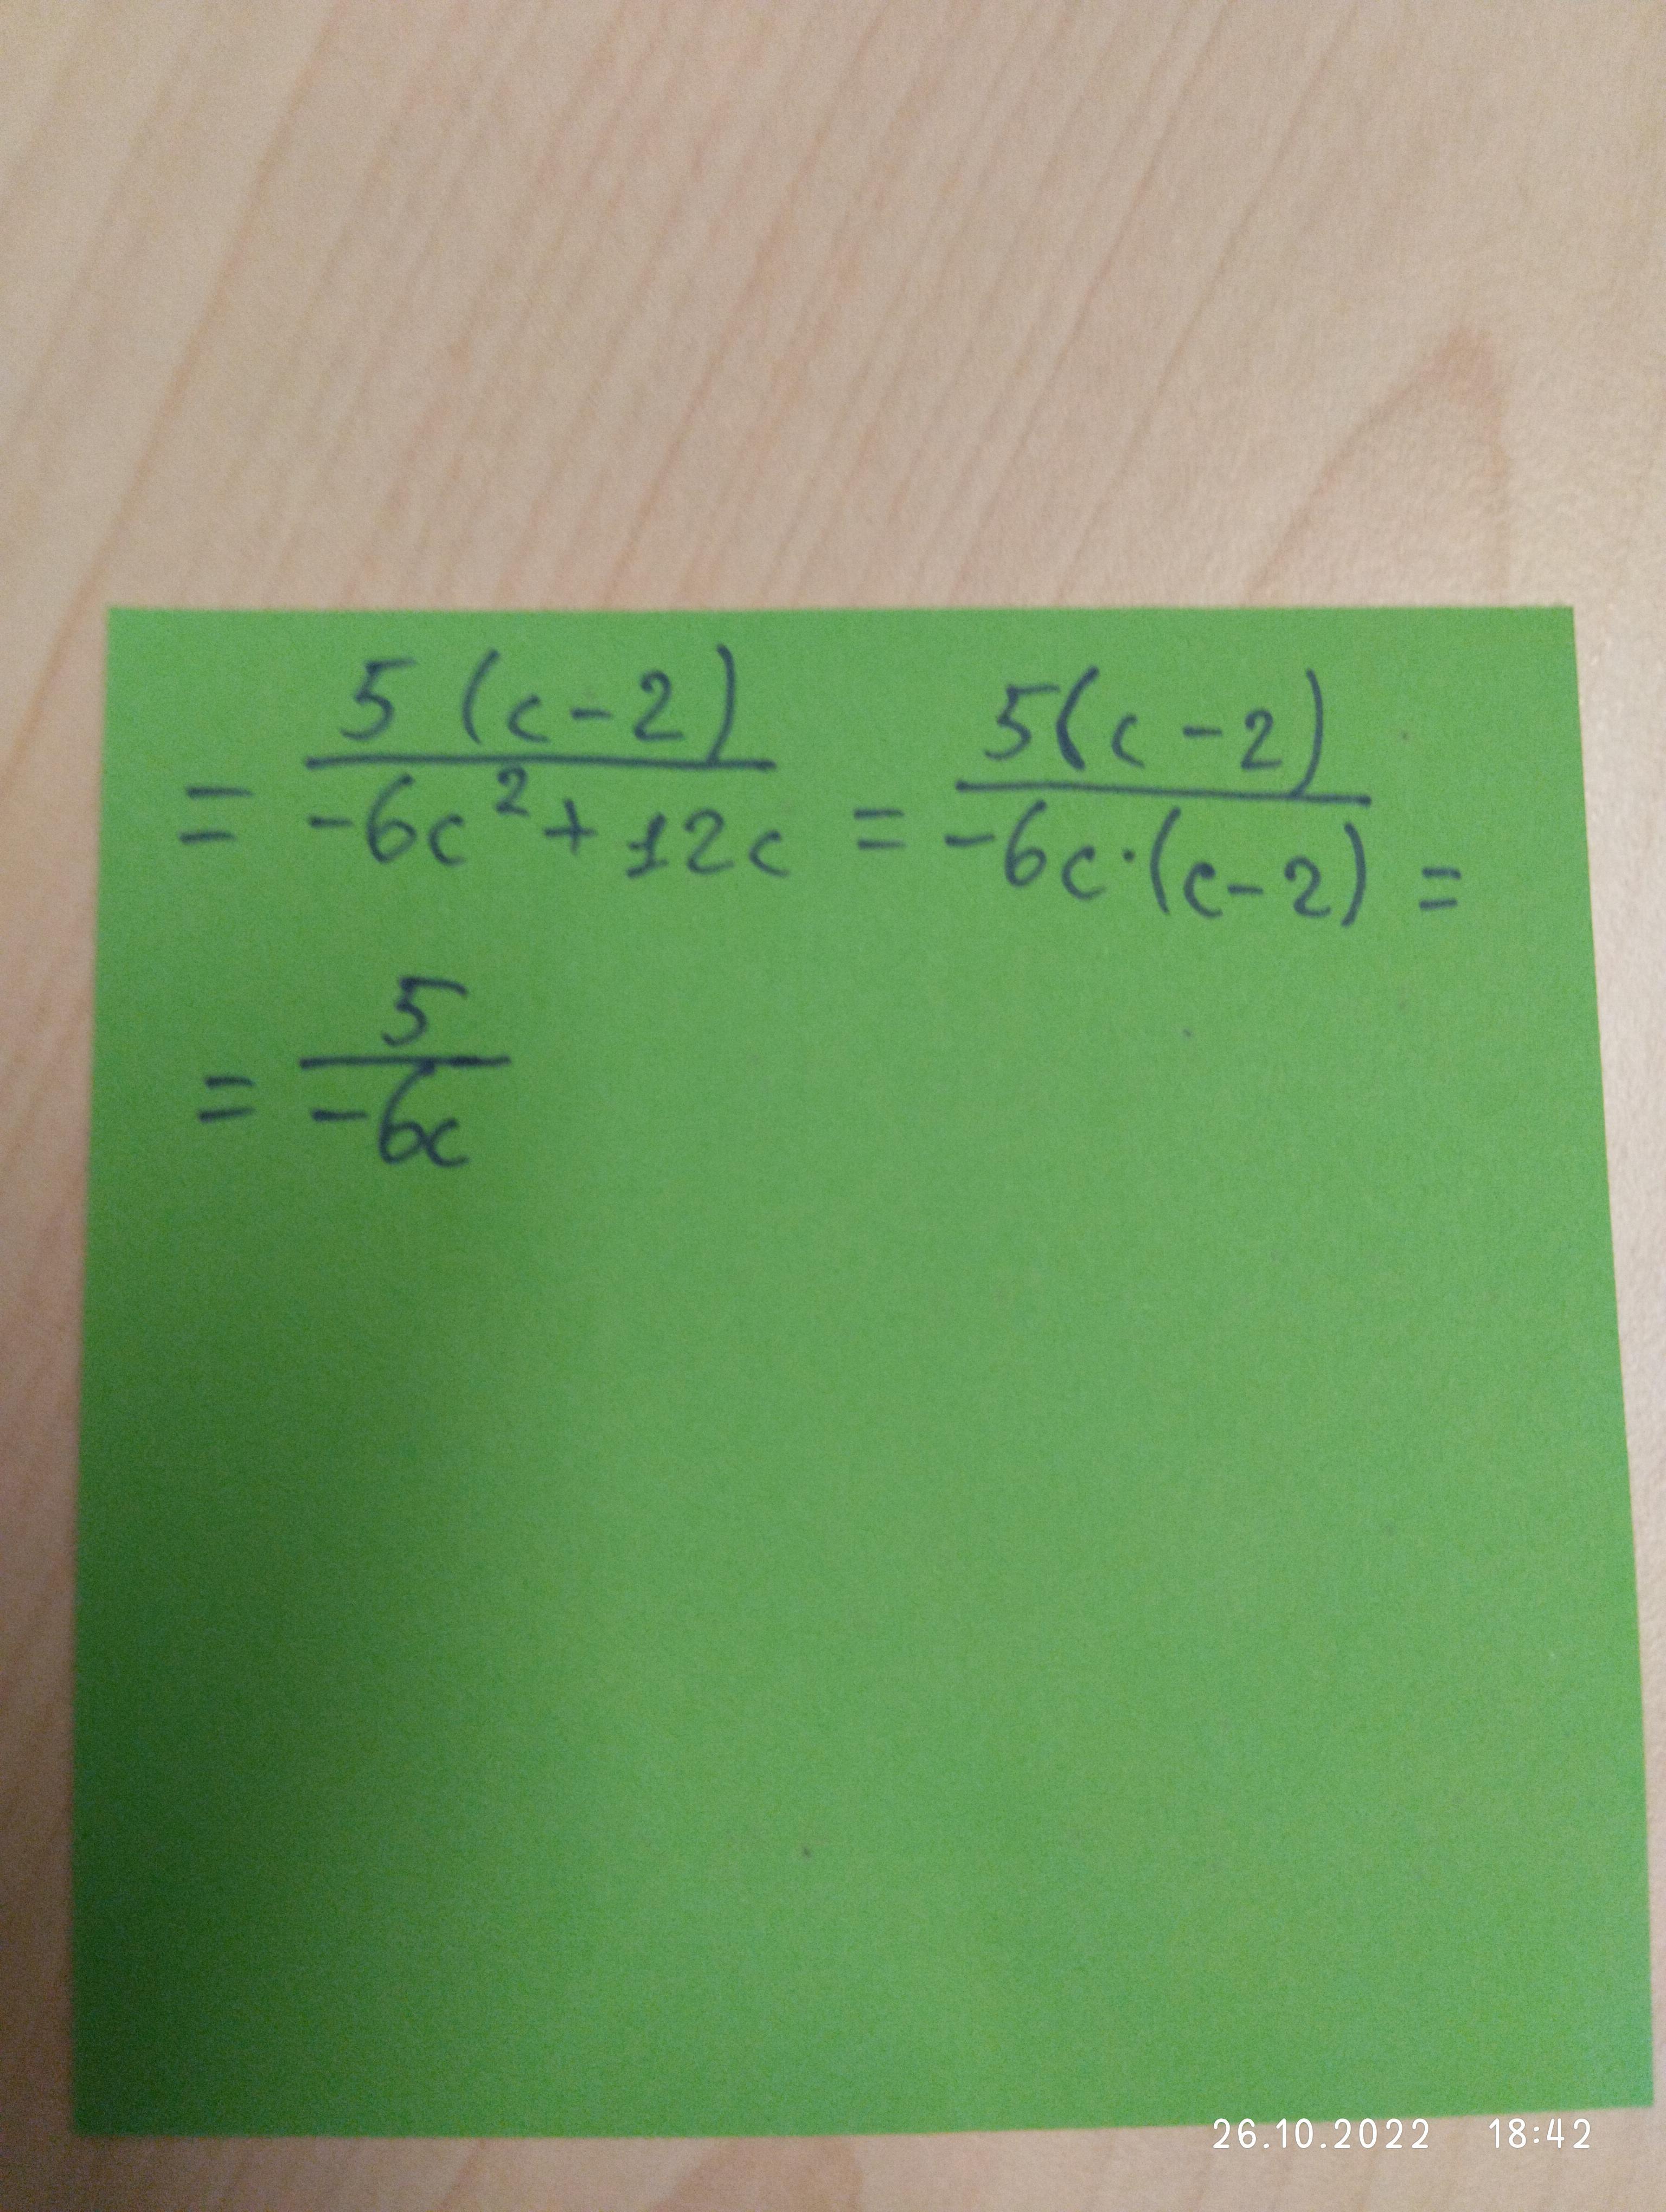 = 5(c-2)/(-6c²+12c) = 5(c-2)/(-6c·(c-2)) =
= 5/(-6c)
26.10.2022 18:42